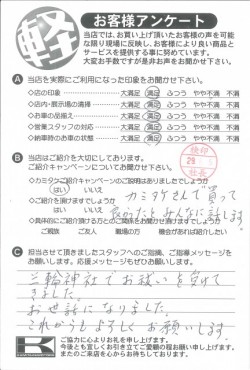 軽
お客様アンケート
当店では、お買い上げ頂いたお客様の声を可能
な限り現場に反映し、お客様により良い商品と
サービスを提供する事に努めています。
大変お手数ですが是非お声をお聞かせ下さい。
A 当店を実際にご利用になった印象をお聞かせ下さい。
◇店の印象 大満足 満足 ふつう やや不満 不満
◇店内・展示場の清掃 大満足 満足 ふつう やや不満 不満
◇お車の品揃え 大満足 満足 ふつう やや不満 不満
◇営業スタッフの対応 大満足 満足 ふつう やや不満 不満
◇納車時のお車の状態 大満足 満足 ふつう やや不満 不満
B 当店はご紹介を大切にしております。
ご紹介キャンペーンについてお聞かせ下さい。
◇カミタケご紹介キャンペーンのご説明はありましたでしょうか
はい いいえ
◇ご紹介を頂けますでしょうか
はい いいえ
カミタケさんで買って
良かったとみんなに話します。
ご親族 ご友人 職場の方 機会があれば紹介したい
C 担当させて頂きましたスタッフへのご指摘、ご指導メッセージを
お願いします。応援メッセージもぜひお願いします。
三輪神社でお祓いを受けて
きました。
お世話になりました。
これからもよろしくお願いします。
ご協力に心よりお礼を申し上げます。
今後とも宜しくお引き立てご愛顧の程お願い申し上げます。
またのご来店を心からお待ちしております。